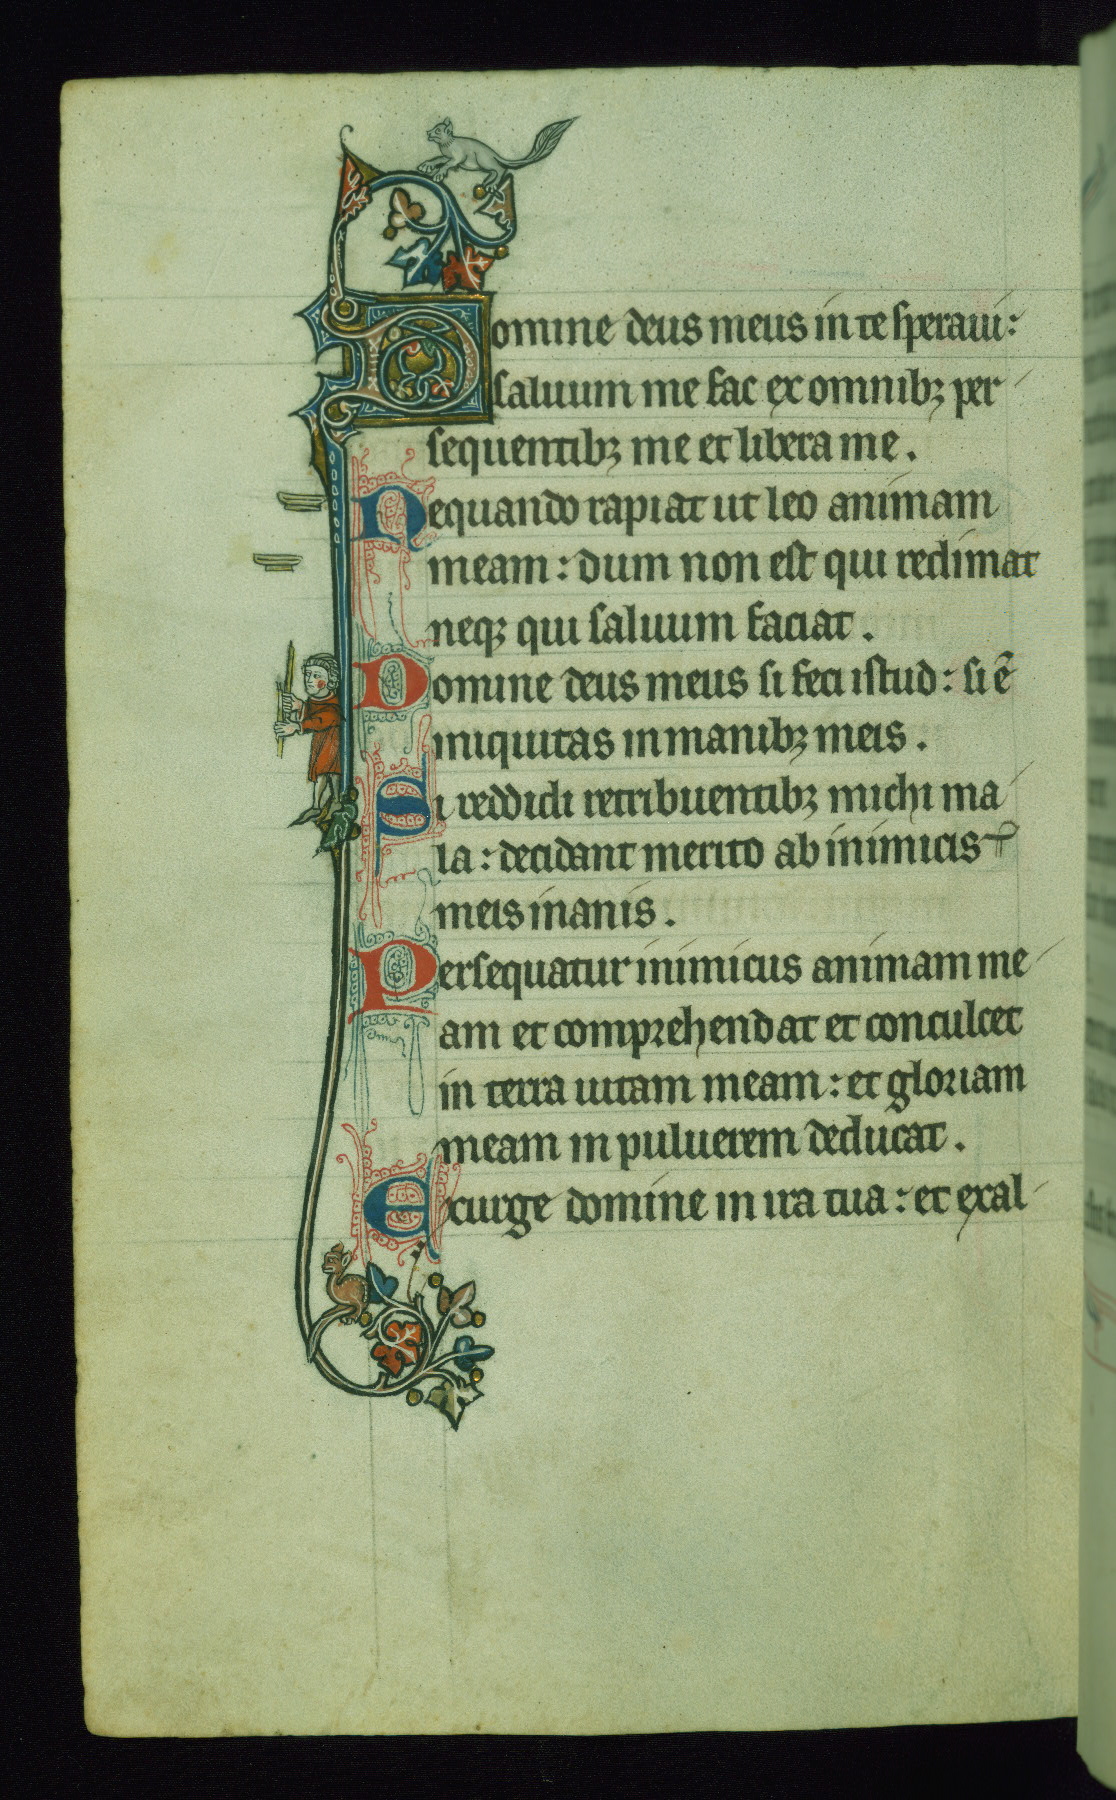 Domine deus meus in te speraui:
saluum me fac ex omnibꝫ per
sequentibꝫ me et libera me.
Nequando rapiat ut leo animam
meam: dum non est qui redimat
neqꝫ qui saluum faciat.
Domine deus meus si feci istud: si ē
iniquitas in manibꝫ meis.
Si reddidi retribuentibꝫ michi ma
la: decidant merito ab inimicis
meis inanis.
Persequatur inimicus animam me
am et comprehendat et conculcet
in terra uitam meam: et gloriam
meam in puluerem deducat.
Exurge domine in ira tua: et exal